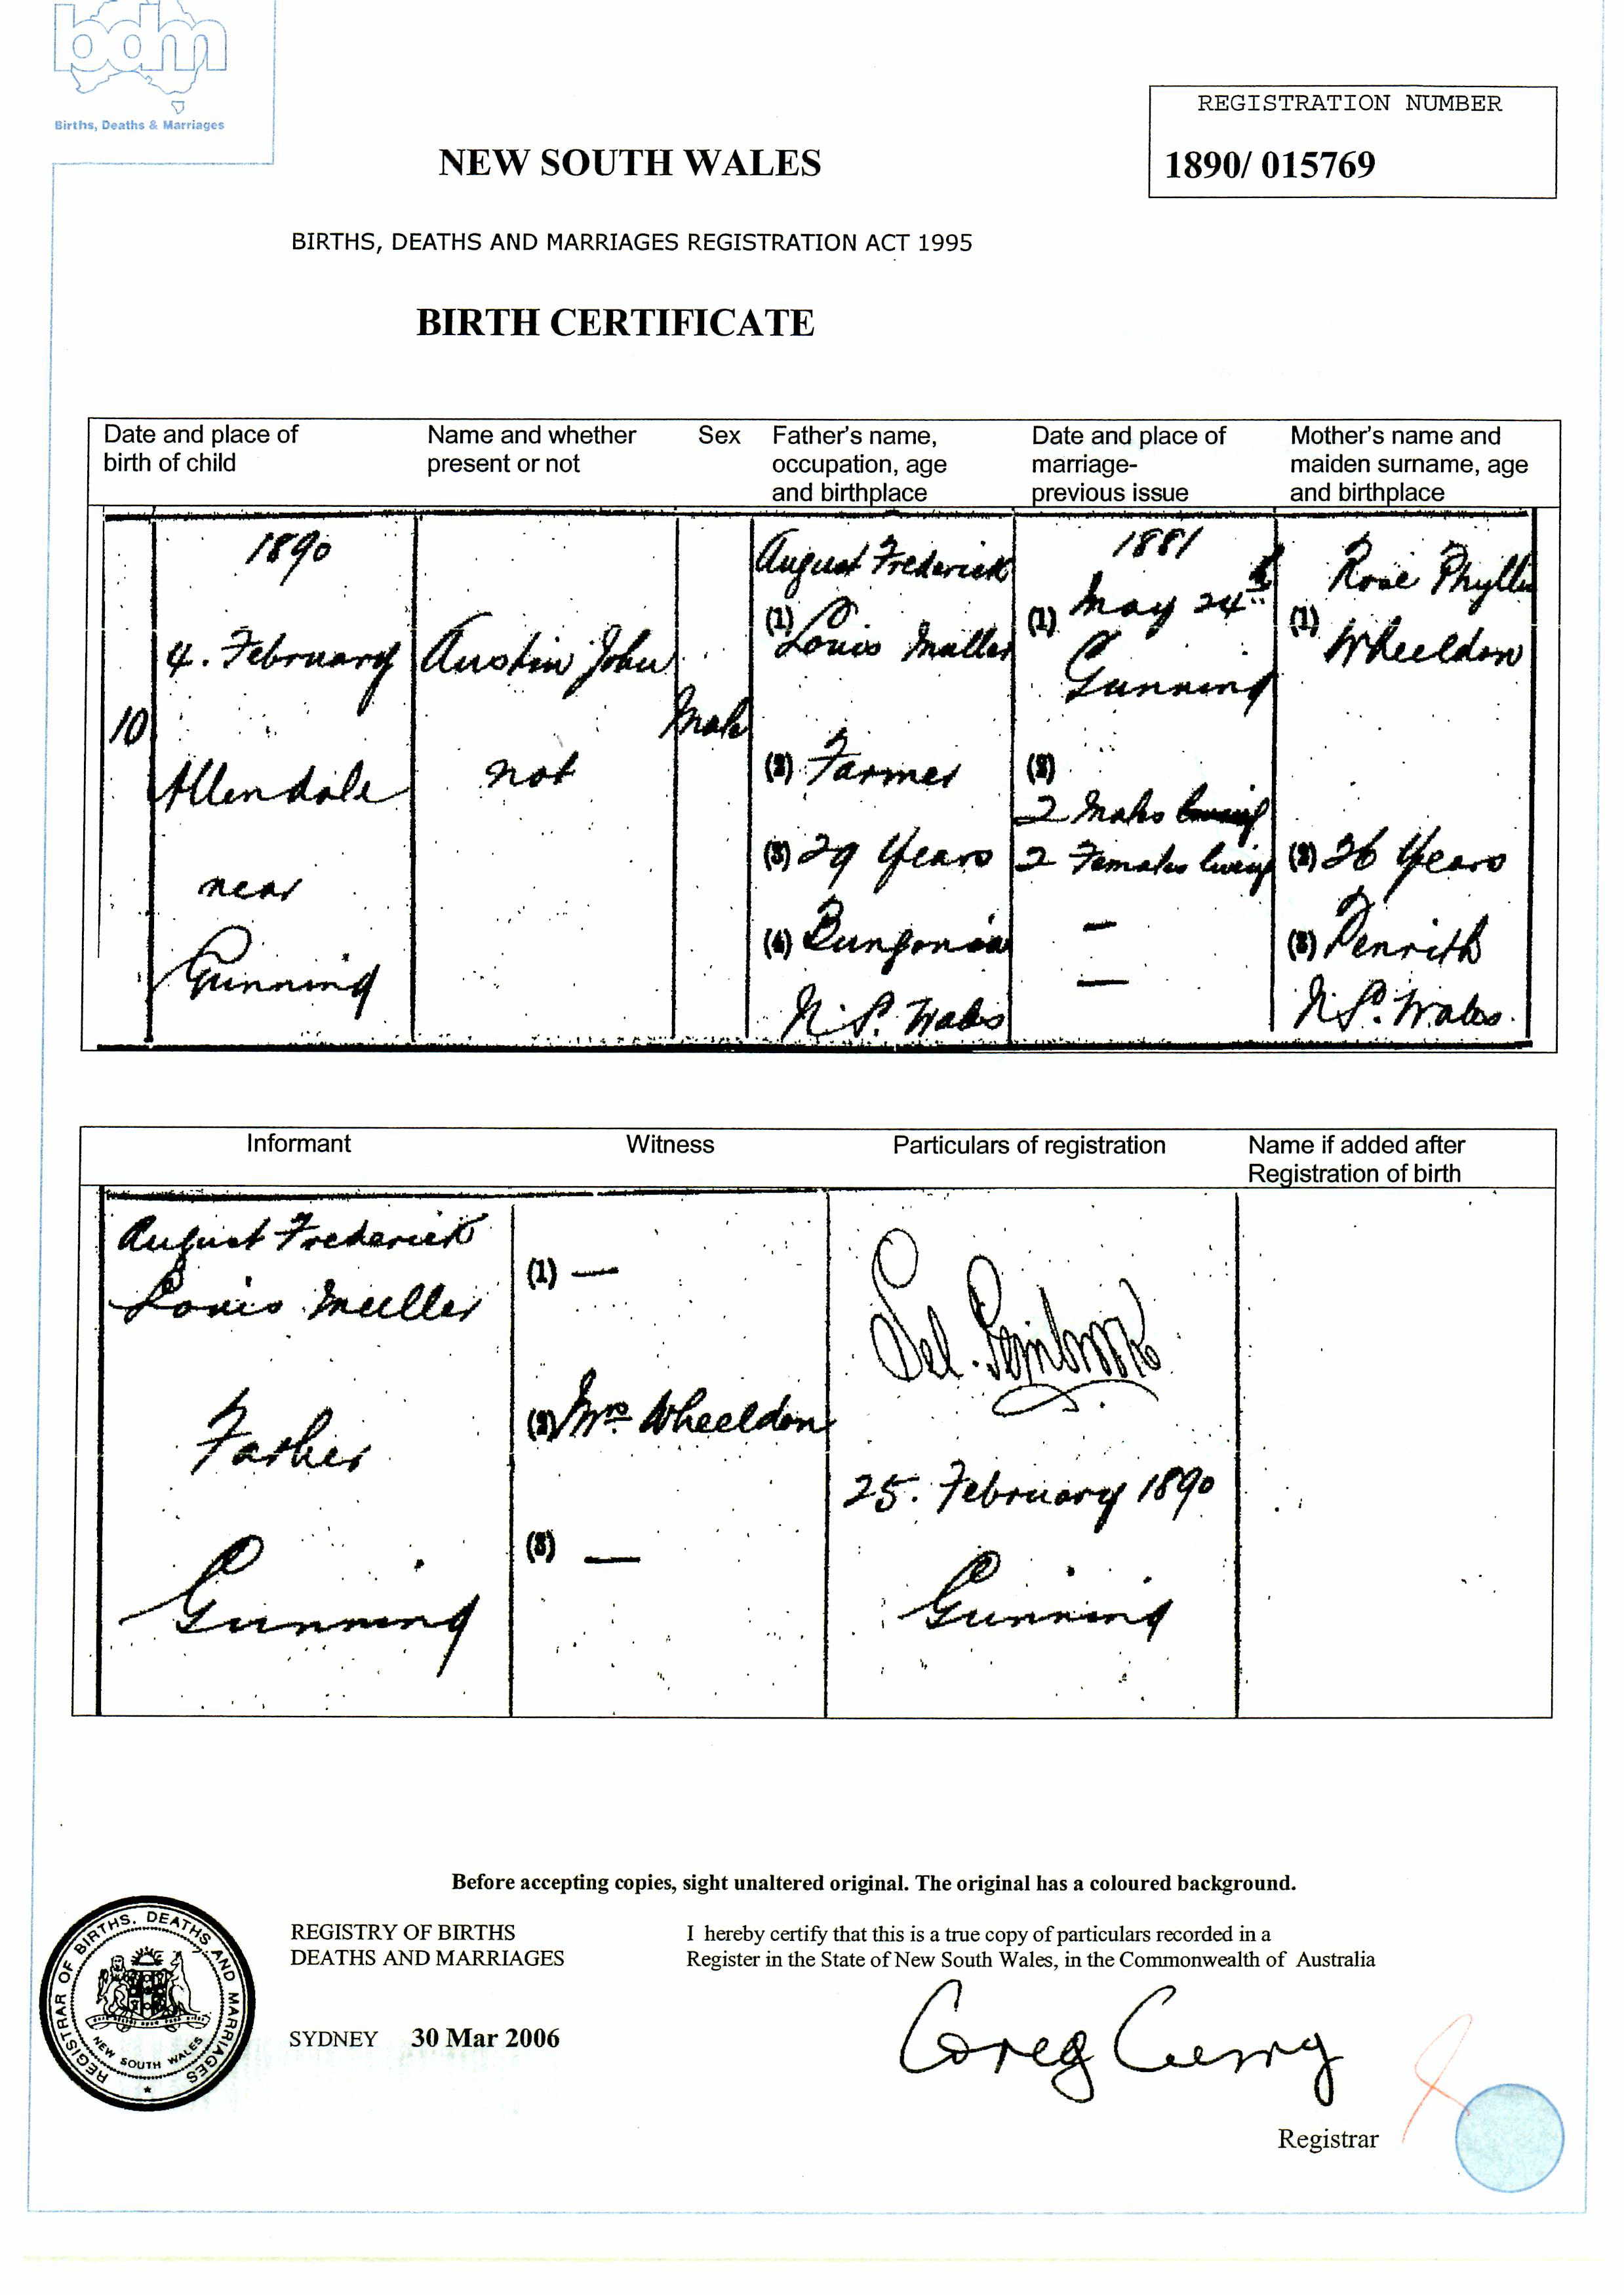 bdm
Births, Deaths & Marriages
REGISTRATION NUMBER
1890/ 015769
NEW SOUTH WALES
BIRTHS, DEATHS AND MARRIAGES REGISTRATION ACT 1995
BIRTH CERTIFICATE
Date and place of
birth of child
Name and whether
present or not
Sex
Father's name,
occupation, age
and birthplace
Date and place of
marriage-
previous issue
Mother's name and
maiden surname, age
and birthplace
10
1890
4. February
Allendale
near
Gunning
Austin John
not
Male
August Frederick
(1) Louis Muller
(2) Farmer
(3) 29 Years
(4) Bungonia
N.S. Wales
1881
(1) May 24th
Gunning
(2)
2 Males living
2 Females living
—
—
Rose Phyllis
(1) Wheeldon
(2) 26 Years
(3) Penrith
N.S. Wales.
Informant
Witness
Particulars of registration
Name if added after
Registration of birth
August Frederick
Louis Muller
Father
Gunning
(1) —
(2) Mrs. Wheeldon
(3) —
25. February 1890
Gunning
Before accepting copies, sight unaltered original. The original has a coloured background.
REGISTRAR OF BIRTHS, DEATHS AND MARRIAGES
NEW SOUTH WALES
REGISTRY OF BIRTHS
DEATHS AND MARRIAGES
SYDNEY 30 Mar 2006
I hereby certify that this is a true copy of particulars recorded in a
Register in the State of New South Wales, in the Commonwealth of Australia
Greg Curry
Registrar